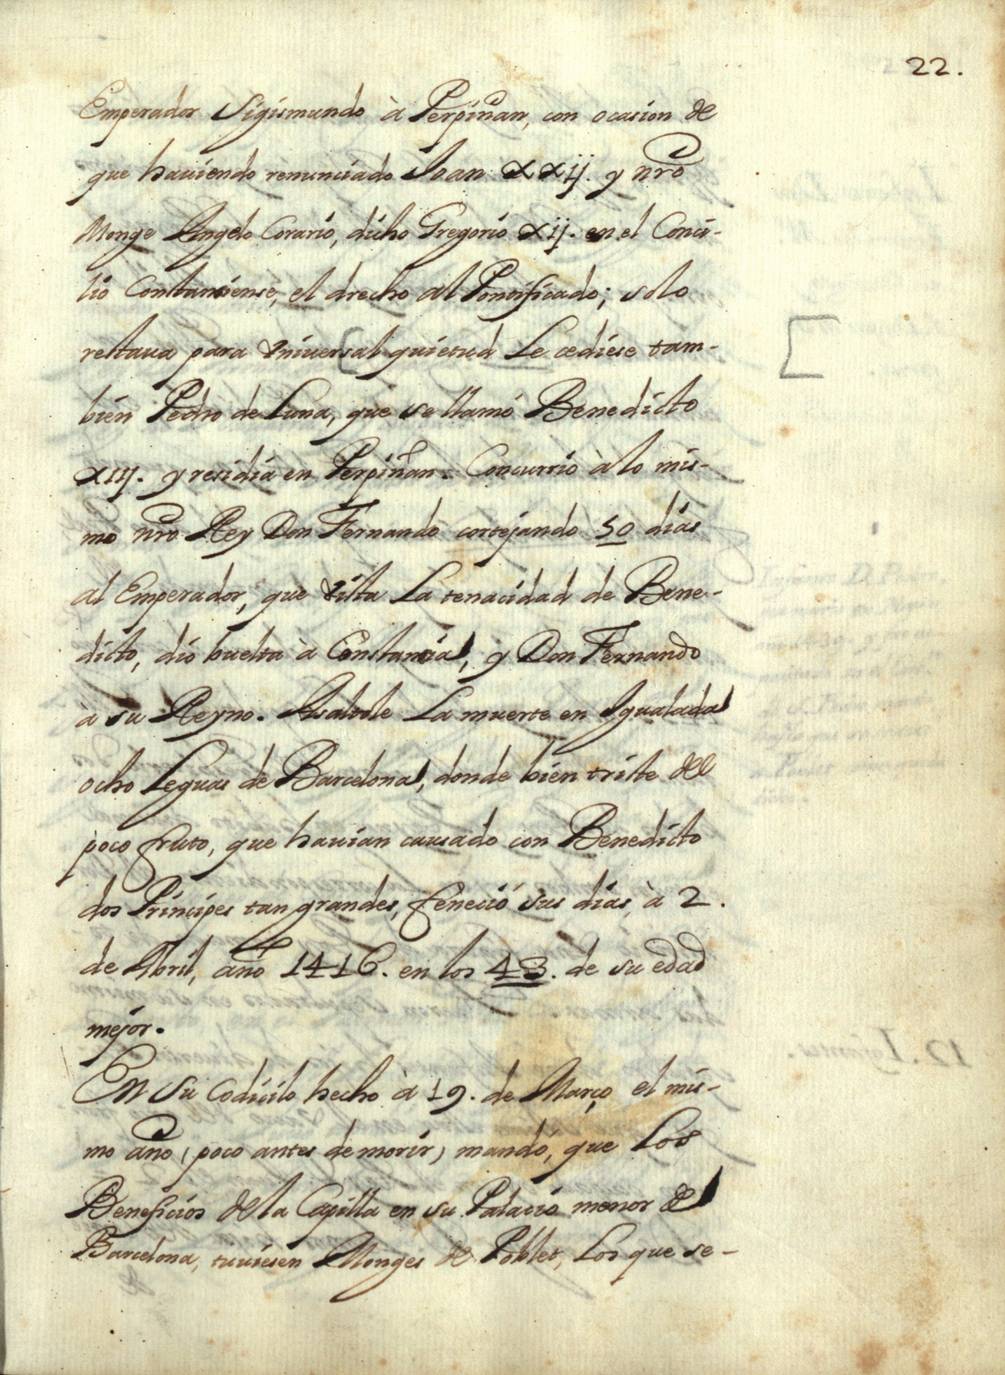 22.
Emperador Sigismundo à Perpiñan, con ocasion de
que haviendo renunciado Joan XXij. y nrõ
Monge Angelo Corario, dicho Gregorio xij. en el Conci-
lio Constansiense, el drecho al Pontificado; solo
restava para vniversal quietud Le cediese tam-
bien Pedro de Luna, que se llamó Benedicto
XIIJ. y residia en Perpiñan. Concurrió à lo mis-
mo nrõ Rey Don Fernando cortejando 50 dias
al Emperador, que vista La tenacidad de Bene-
dicto, dió buelta à Constancia, y Don Fernando
à su Reyno. Asaltole La muerte en Igualada
ocho Leguas de Barcelona, donde bien triste del
poco fruto, que havian causado con Benedicto
dos Principes tan grandes, feneció sus dias, à 2.
de Abril, año 1416. en los 43. de su edad
mejor.
En su Codicilo hecho à 19. de Março el mis-
mo año (poco antes de morir) mandó, que Los
Beneficios de la Capilla en su Palacio menor de
Barcelona, tuviesen Monges de Poblet, Los que se-